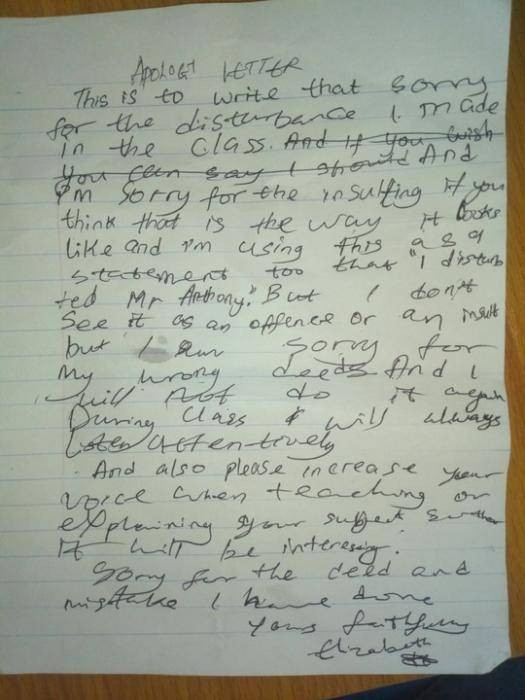 APOLOGY LETTER
This is to write that sorry
for the disturbance I made
in the class. And if you wish
you can say I should And
I'm sorry for the insulting if you
think that is the way it looks
like and i'm using this as a
statement too that "I disturb
ted Mr Anthony." But I don't
see it as an offence or an insult
but I am sorry for
my wrong deeds And I
will not do it again
During class & will always
listen attentively
And also please increase your
voice when teaching or
explaining your subject so that
it will be interesing.
Sorry for the deed and
mistake I have done
Yours faithfully
Elizabeth